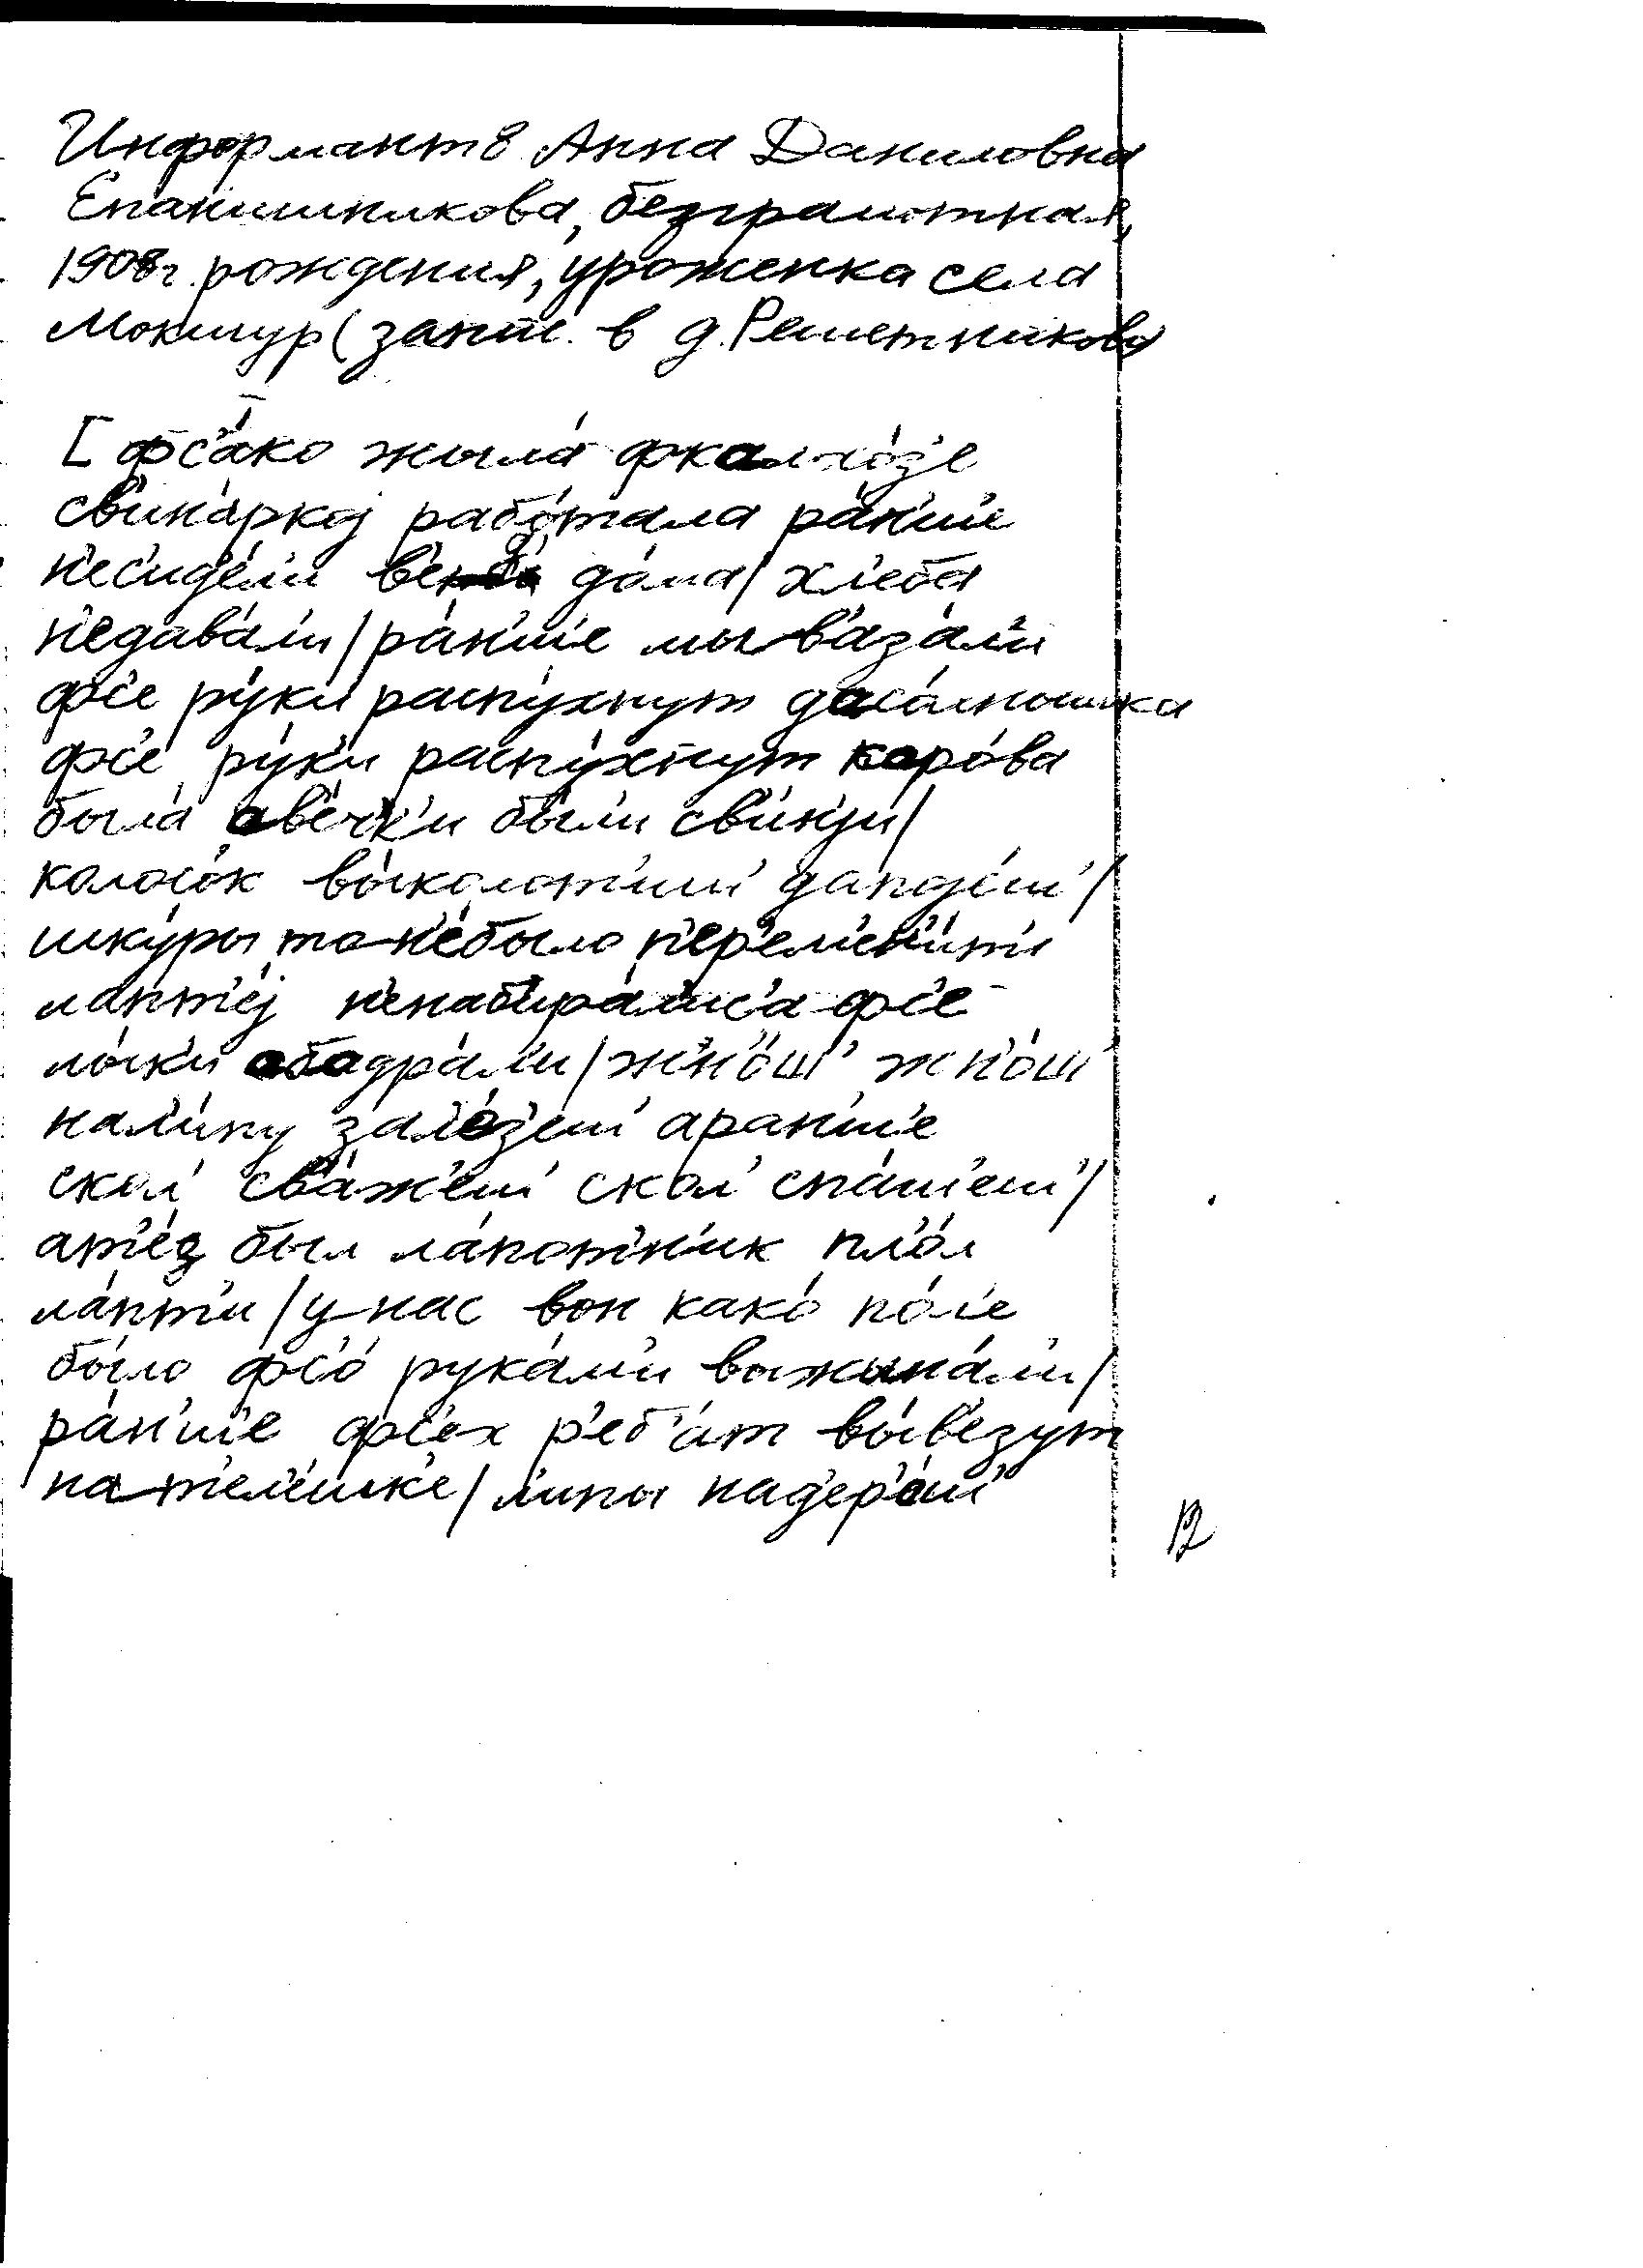 Информант 8 Анна Даниловна
Епанишникова, безграмотная,
1908 г. рождения, уроженка села
Мокшур (запис. в д. Решетниково
[фс'а́ко жыла́ фкалхо́з'е
св'ина́ркој рабо́тала ра́н'ше
н'ес'ид'е́л'и дома/ хл'е́ба
н'едава́л'и/ра́н'ше мы в'аза́л'и
фс'е ру́к'и распу́хнут
фс'е ру́к'и распу́хнут коро́ва
была́ ове́чк'и бы́л'и св'и́н'ји/
колосо́к вы́колот'иш
шку́ры то не́было п'ер'ем'ен'и́т'
лапт'е́ј н'енаб'ира́л'ис'а фс'е
лы́к'и ободра́л'и/жн'о́ш жн'о́ш
нал'и́пу зал'е́з'еш ара́н'ше
скол' св'а́жеш скол'
ат'е́ц был ла́потн'ик пл'ол
ла́пт'и/у нас вон како́ по́л'е
бы́ло фс'о рука́м'и выжына́л'и/
ра́н'ше фс'ех р'еб'а́т вы́в'езут
на т'ел'е́шк'е/л'ипы над'ер'о́ш
12